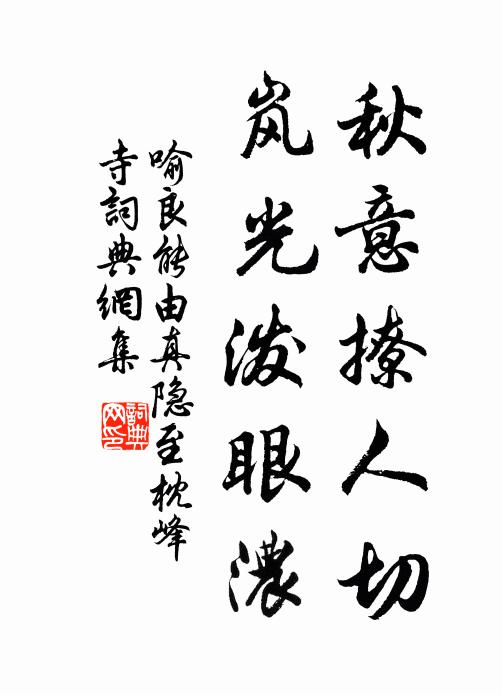 秋意撩人切
岚光泼眼濃
喻良能由真隐至枕峰
寺詞典網集
詞典
网印